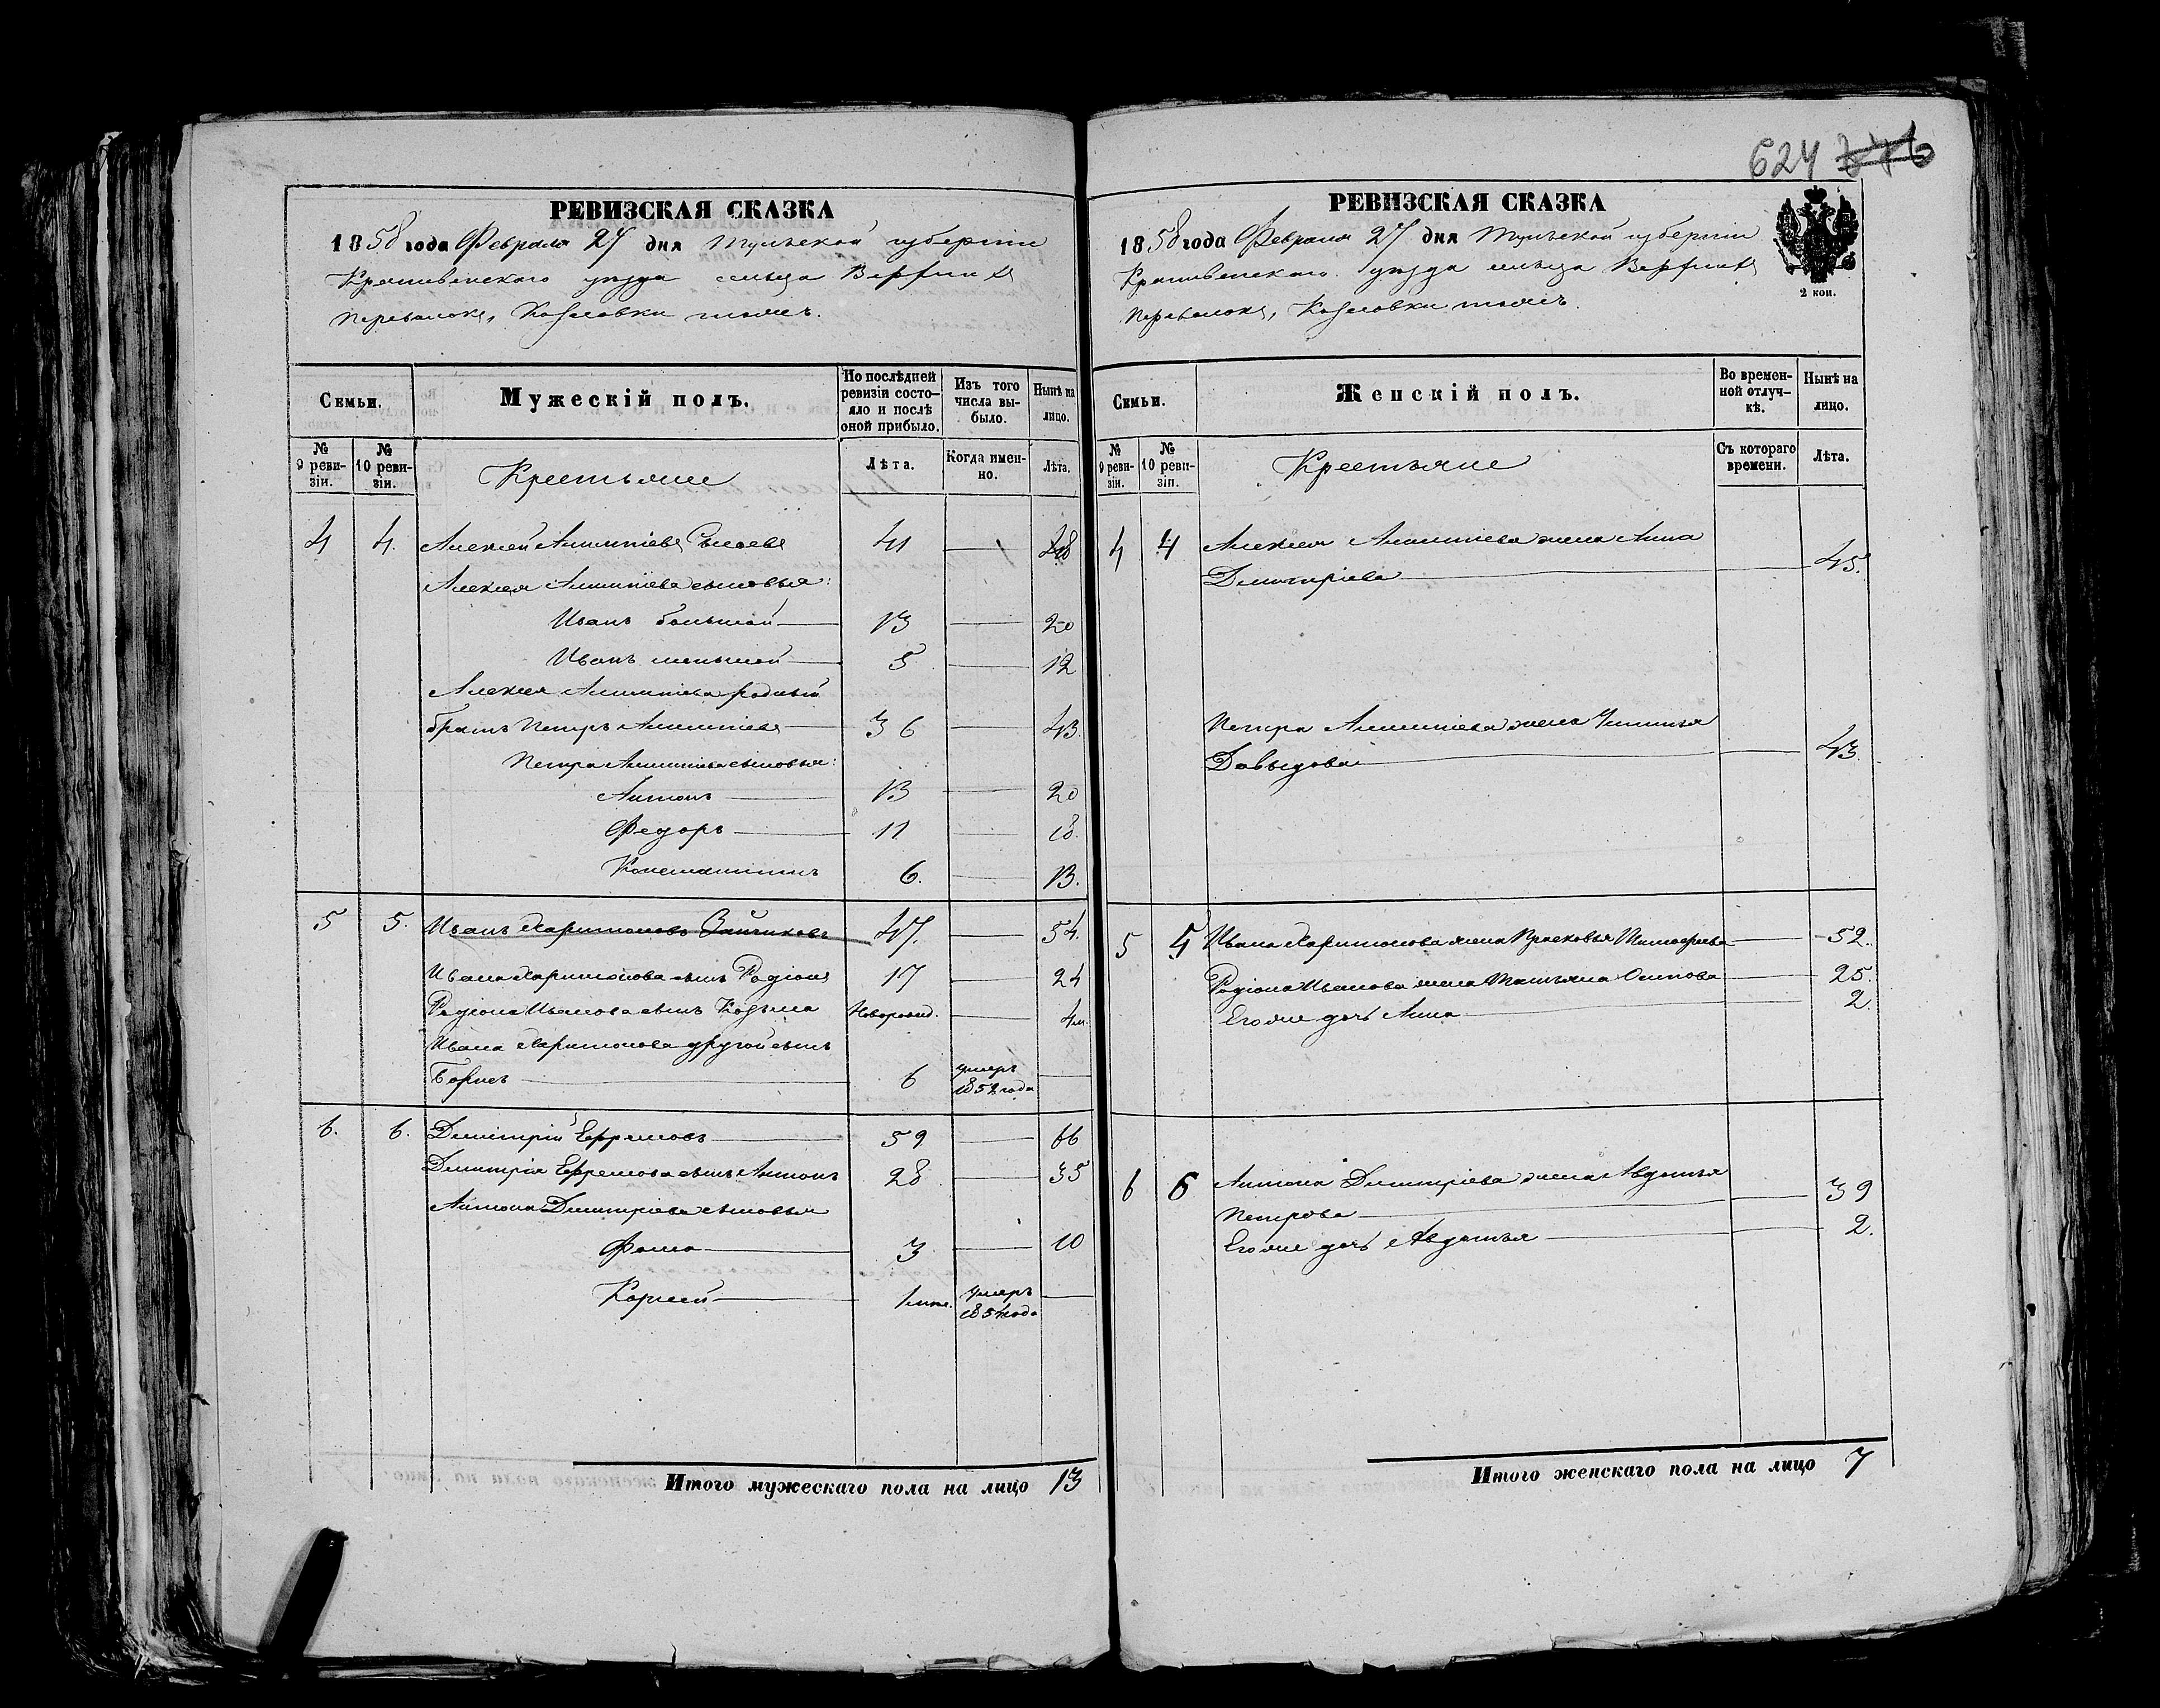 624
РЕВИЗСКАЯ СКАЗКА
1858 года Февраля 27 дня Тульской губернiи
Крапивенскаго уѣзда сельца
Козловки тожъ.
Семьи.
Мужескій полъ.
По послѣдней ревизіи состояло и послѣ оной прибыло.
Изъ того числа выбыло.
Нынѣ на лицо.
№ 9 ревизіи.
№ 10 ревизіи.
Крестьяне
Лѣта.
Когда именно.
Лѣта.
4 4. Алексей 41 — 48
Алексея сыновья:
Иванъ большой — 13 — 20
Иванъ меньшой — 5 — 12
Алексея родный
братъ Петръ — 36 — 43.
Петра сыновья:
Антонъ — 13 — 20
Федоръ — 11 — 18.
Константинъ 6. — 13.
5 5. Иванъ Харитоновъ Зайчиковъ 47. — 54.
Ивана Харитонова сынъ Родіонъ 17 — 24
Родіона Иванова сынъ Козьма Новорожд. — 4 м.
Ивана Харитонова другой сынъ
Борисъ — 6 умеръ 1852 года —
6. 6. Димитрій Ефремовъ — 59 — 66
Димитрія Ефремова сынъ Антонъ 28 — 35
Антона Димитріева сыновья
Фома — 3 — 10
Корней — умеръ 1854 года —
Итого мужескаго пола на лицо 13
РЕВИЗСКАЯ СКАЗКА
1858 года Февраля 27 дня Тульской губернiи
Крапивенскаго уѣзда сельца
Козловки тожъ.
2 коп.
Семьи.
Женскій полъ.
Во временной отлучкѣ.
Нынѣ на лицо.
№ 9 ревизіи.
№ 10 ревизіи.
Крестьяне
Съ котораго времени.
Лѣта.
4 4 Алексея жена Анна
Димитріева — 45.
Петра жена
Давыдова — 43.
5 5 Ивана Харитонова жена Прасковья Тимофеева — 52.
Родіона Иванова жена Татьяна Осипова — 25.
Его же дочь Анна — 2.
6 6 Антона Димитріева жена Авдотья
Петрова — 39
Его же дочь Авдотья — 2.
Итого женскаго пола на лицо 7